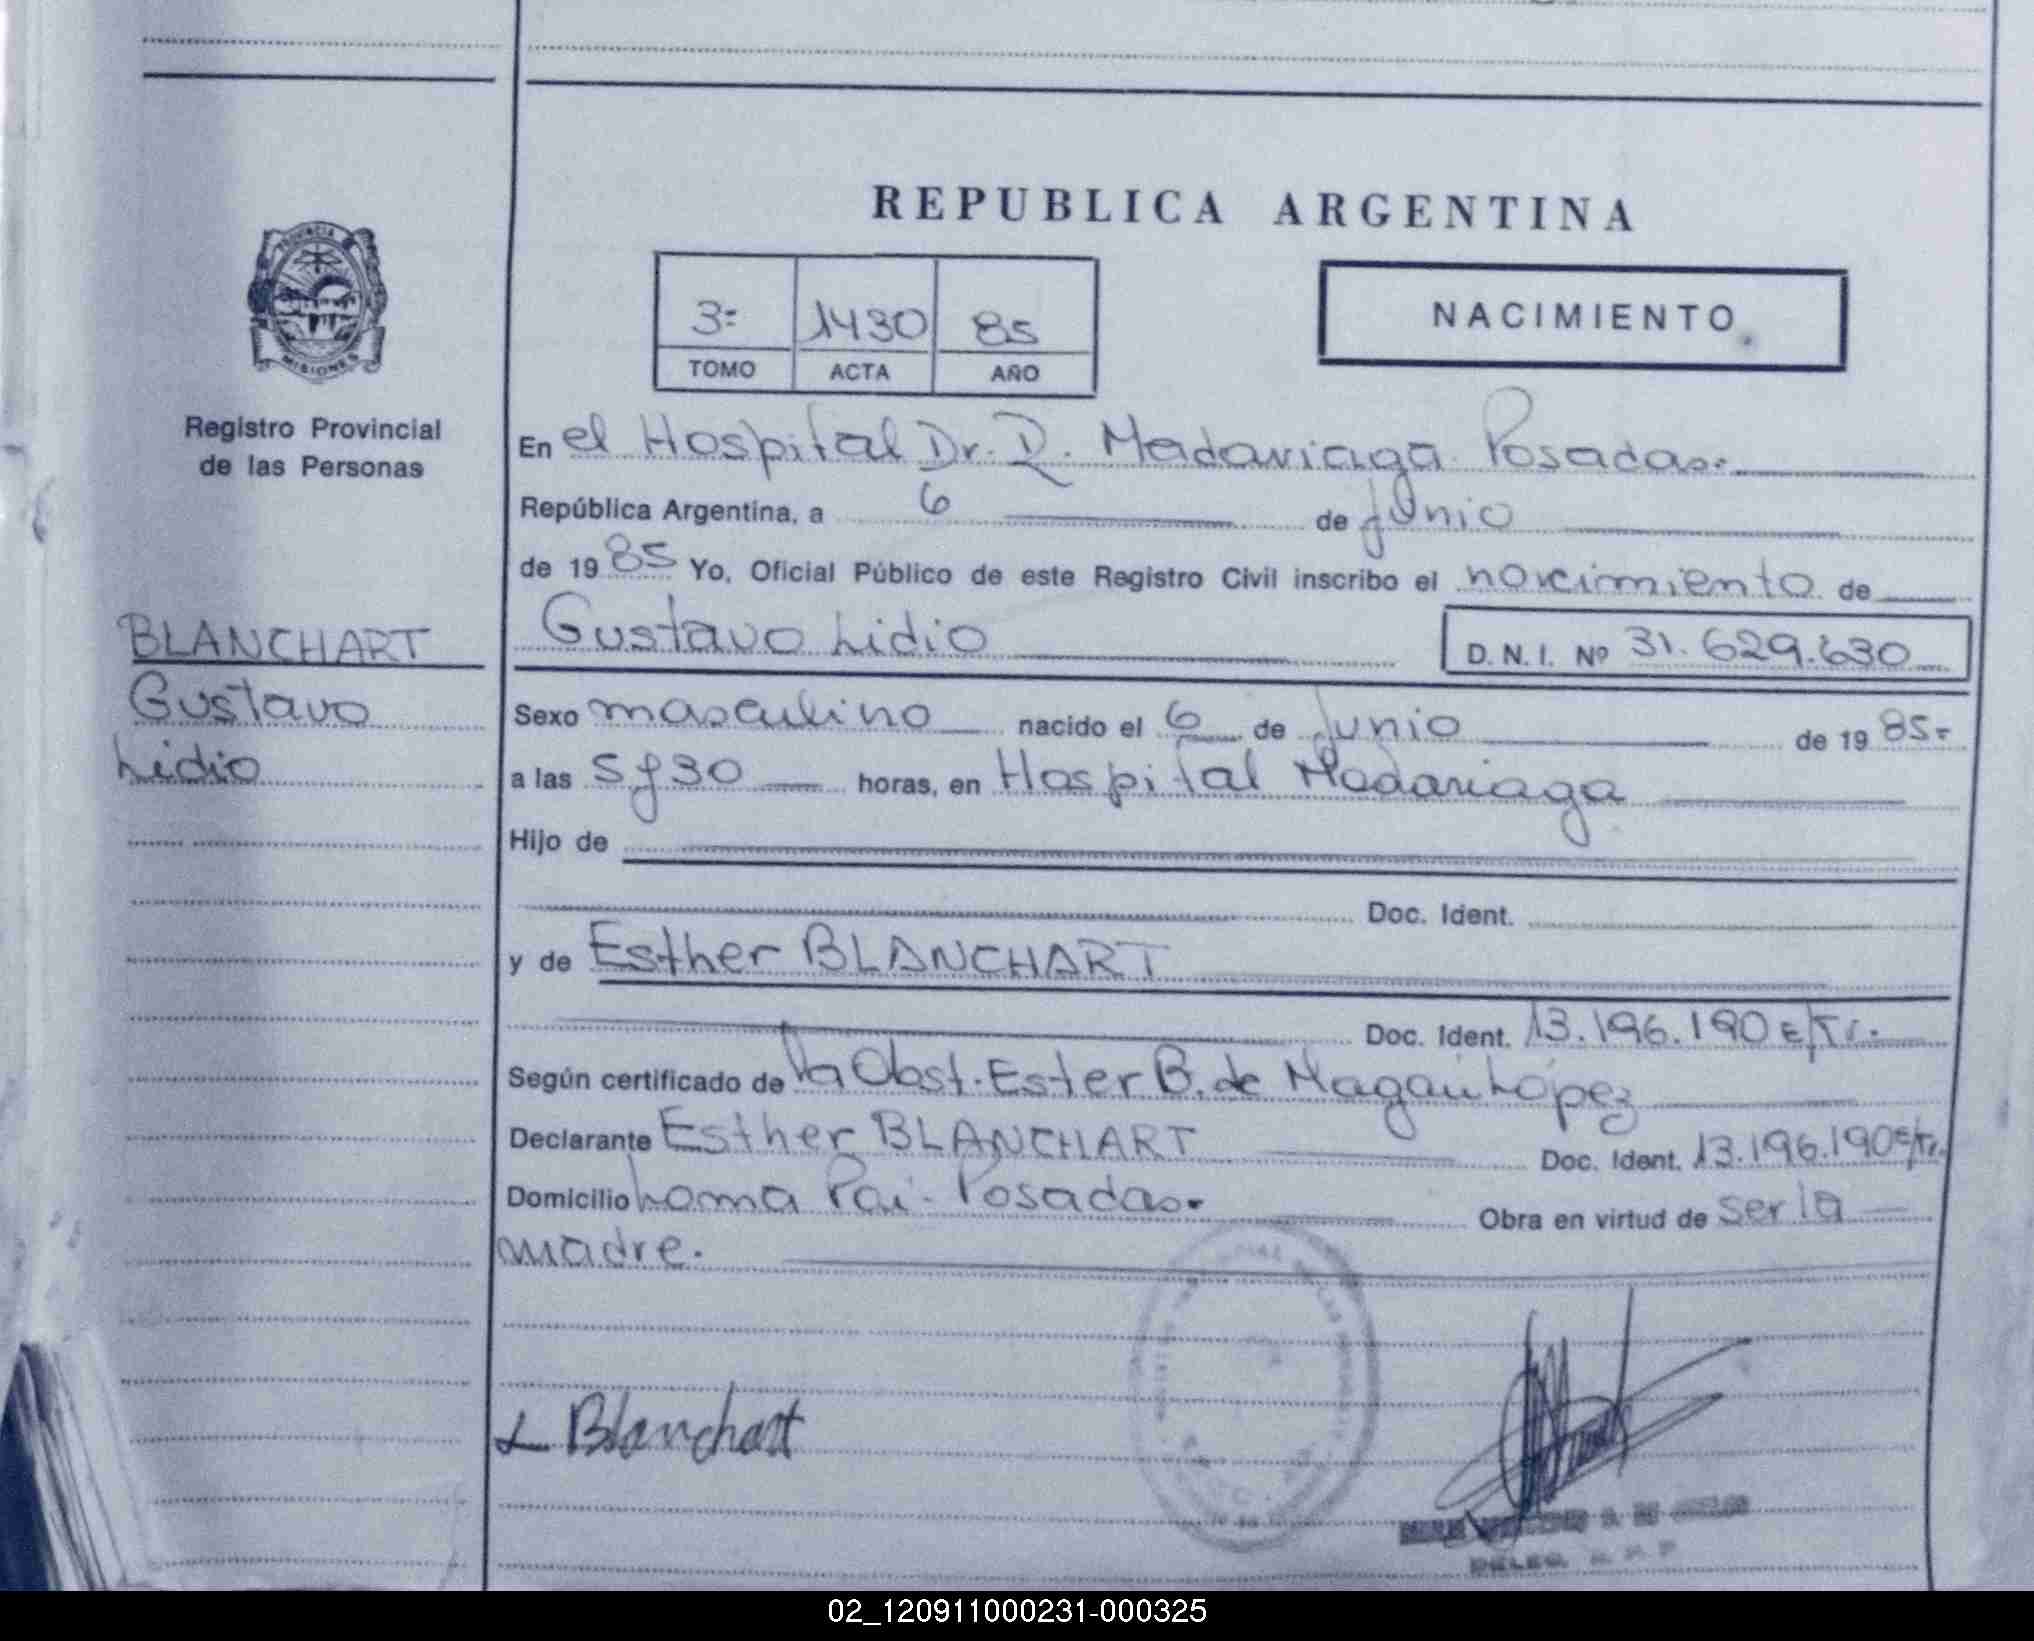 REPUBLICA ARGENTINA
PROVINCIA
MISIONES
3=
1430
85
TOMO
ACTA
AÑO
NACIMIENTO
Registro Provincial
de las Personas
En el Hospital Dr. R. Madariaga Posadas.
República Argentina, a 6 de Junio
de 1985 Yo, Oficial Público de este Registro Civil inscribo el nacimiento de
BLANCHART
Gustavo
Lidio
Gustavo Lidio
D. N. I. Nº 31.629.630
Sexo masculino nacido el 6 de Junio de 1985.-
a las 5 y 30 horas, en Hospital Madariaga
Hijo de
Doc. Ident.
y de Esther BLANCHART
Doc. Ident. 13.196.190 E/Tr.
Según certificado de la Obst. Ester B. de López
Declarante Esther BLANCHART Doc. Ident. 13.196.190 E/Tr.
Domicilio Loma Poi - Posadas. Obra en virtud de ser la
madre.
Blanchart
DELEG. R. P. P
02_120911000231-000325